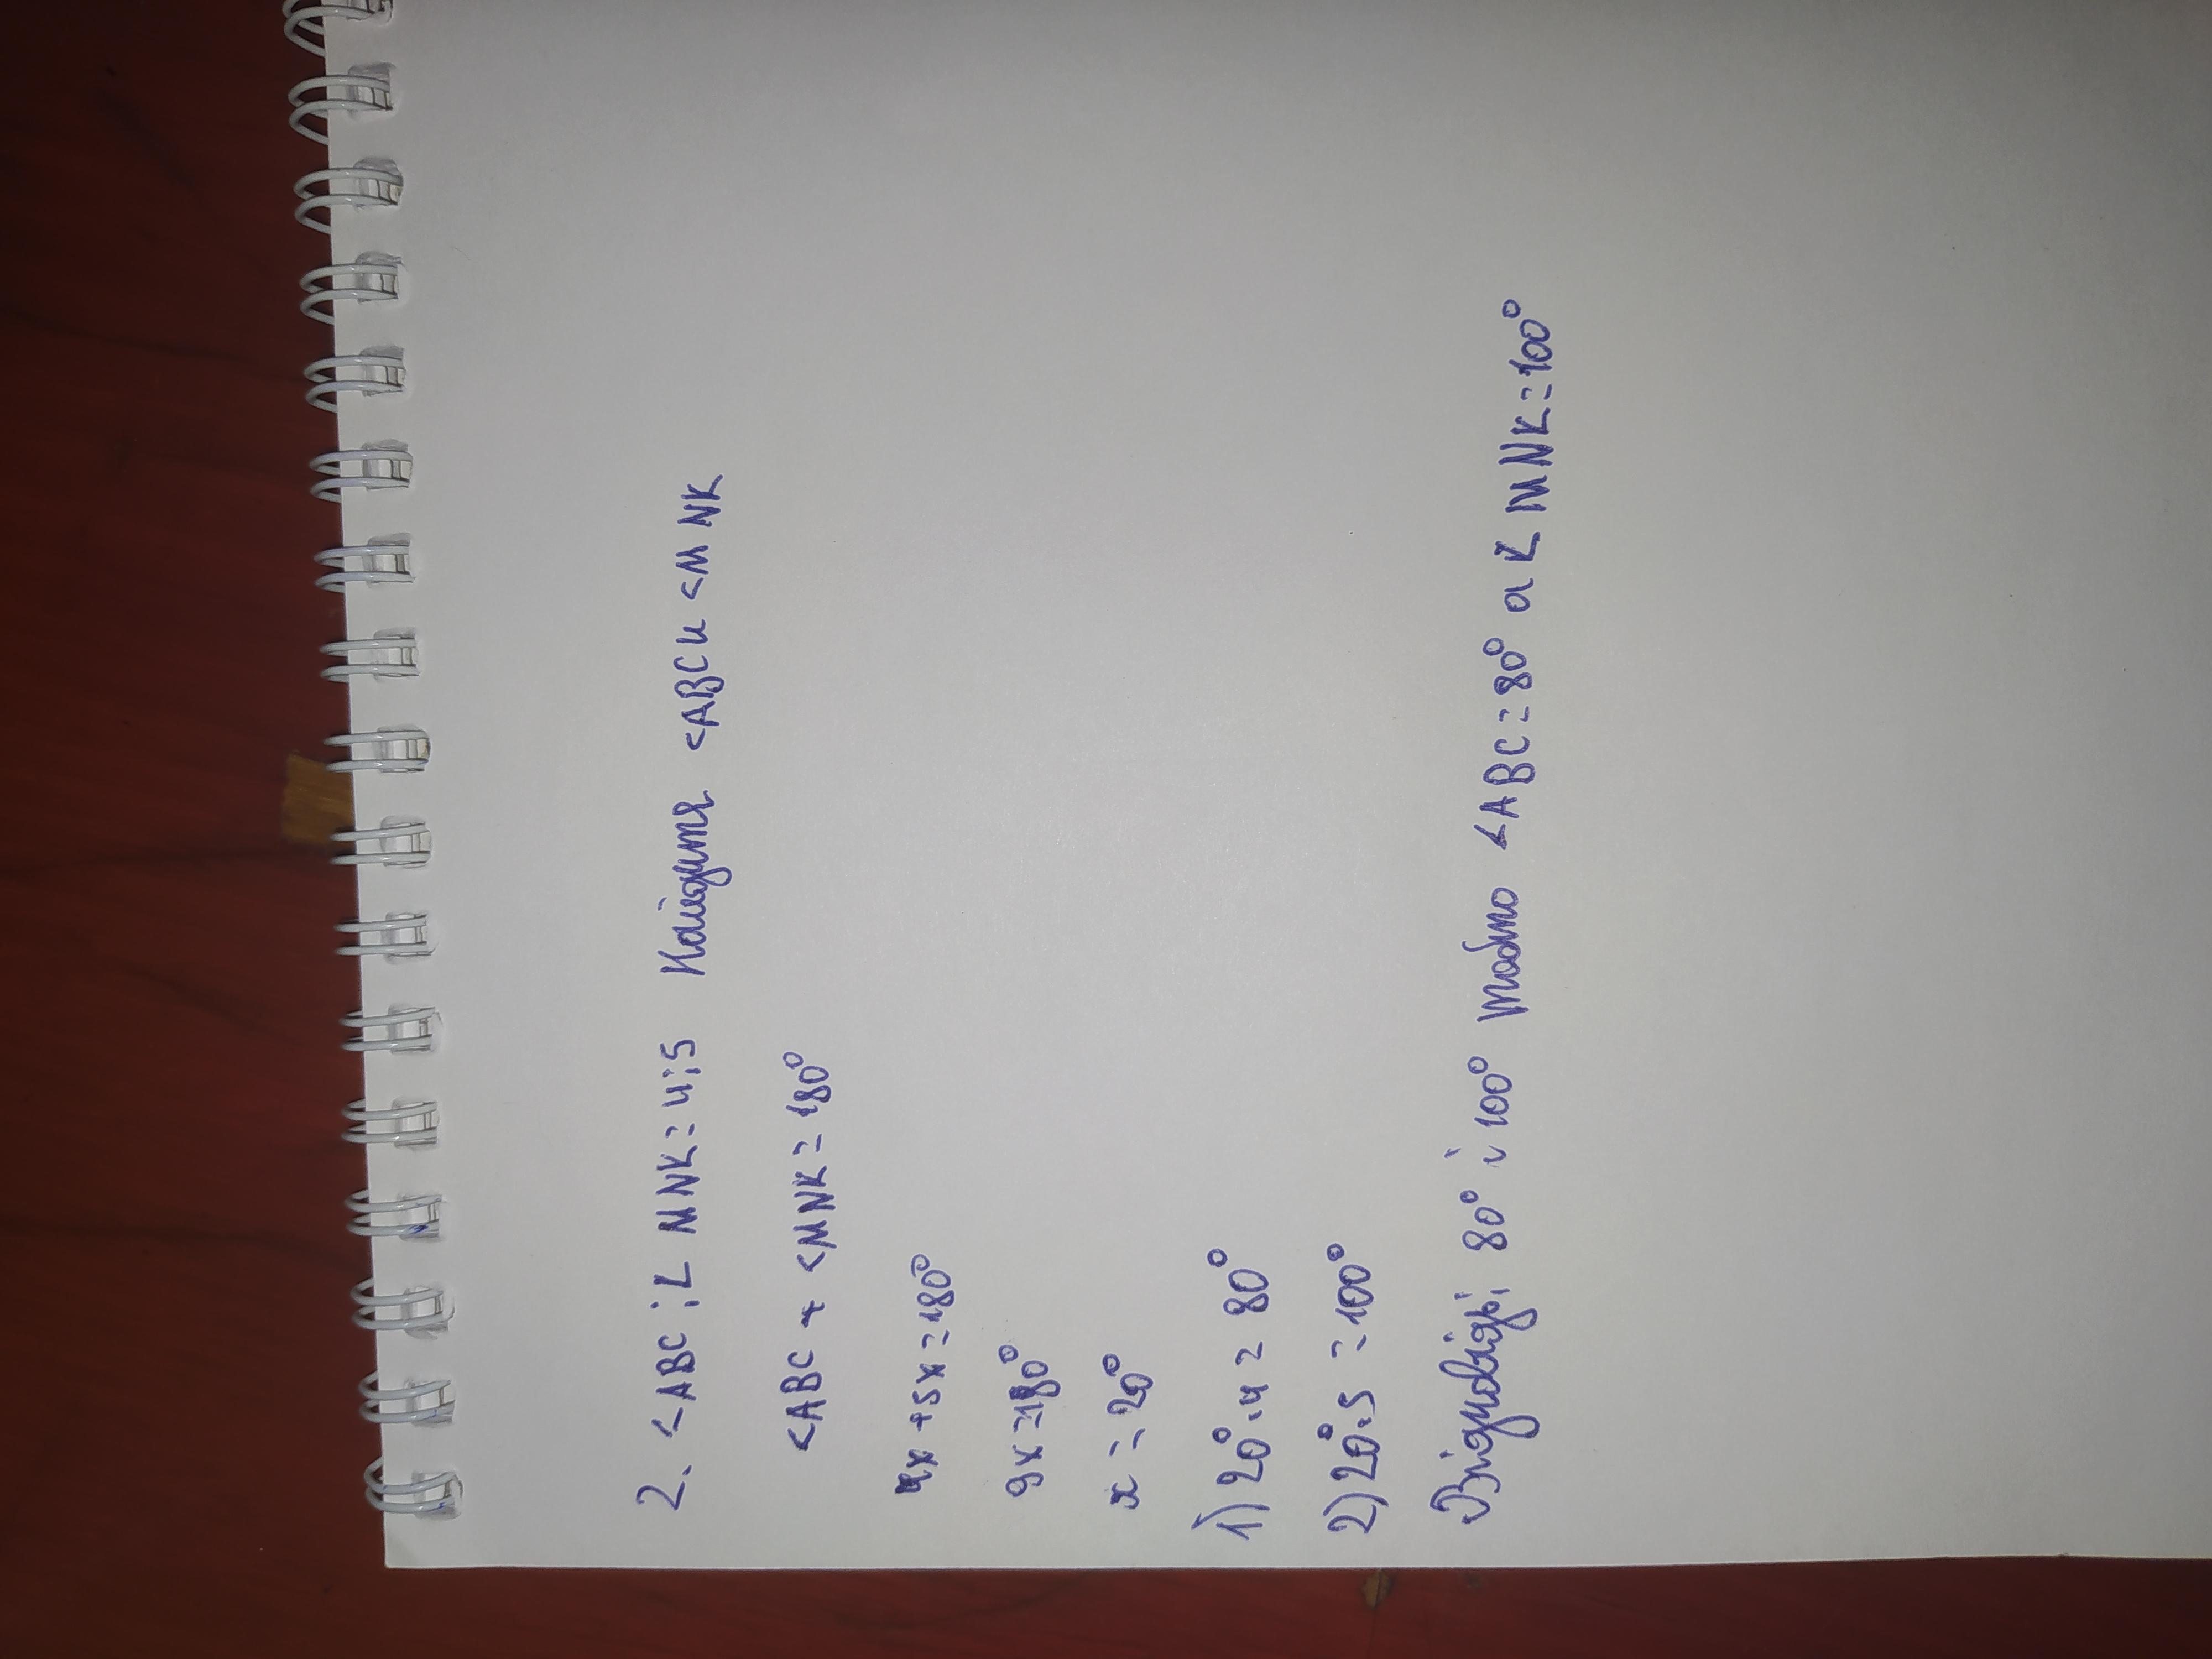 2. <ABC : ∠ MNK = 4:5 Найдите <ABC и <M NK
<ABC + <MNK = 180°
4x + 5x = 180°
9x = 180°
x = 20°
1) 20°·4 = 80°
2) 20°·5 = 100°
Відповідь: 80° і 100° тобто <ABC = 80° а ∠ MNK = 100°